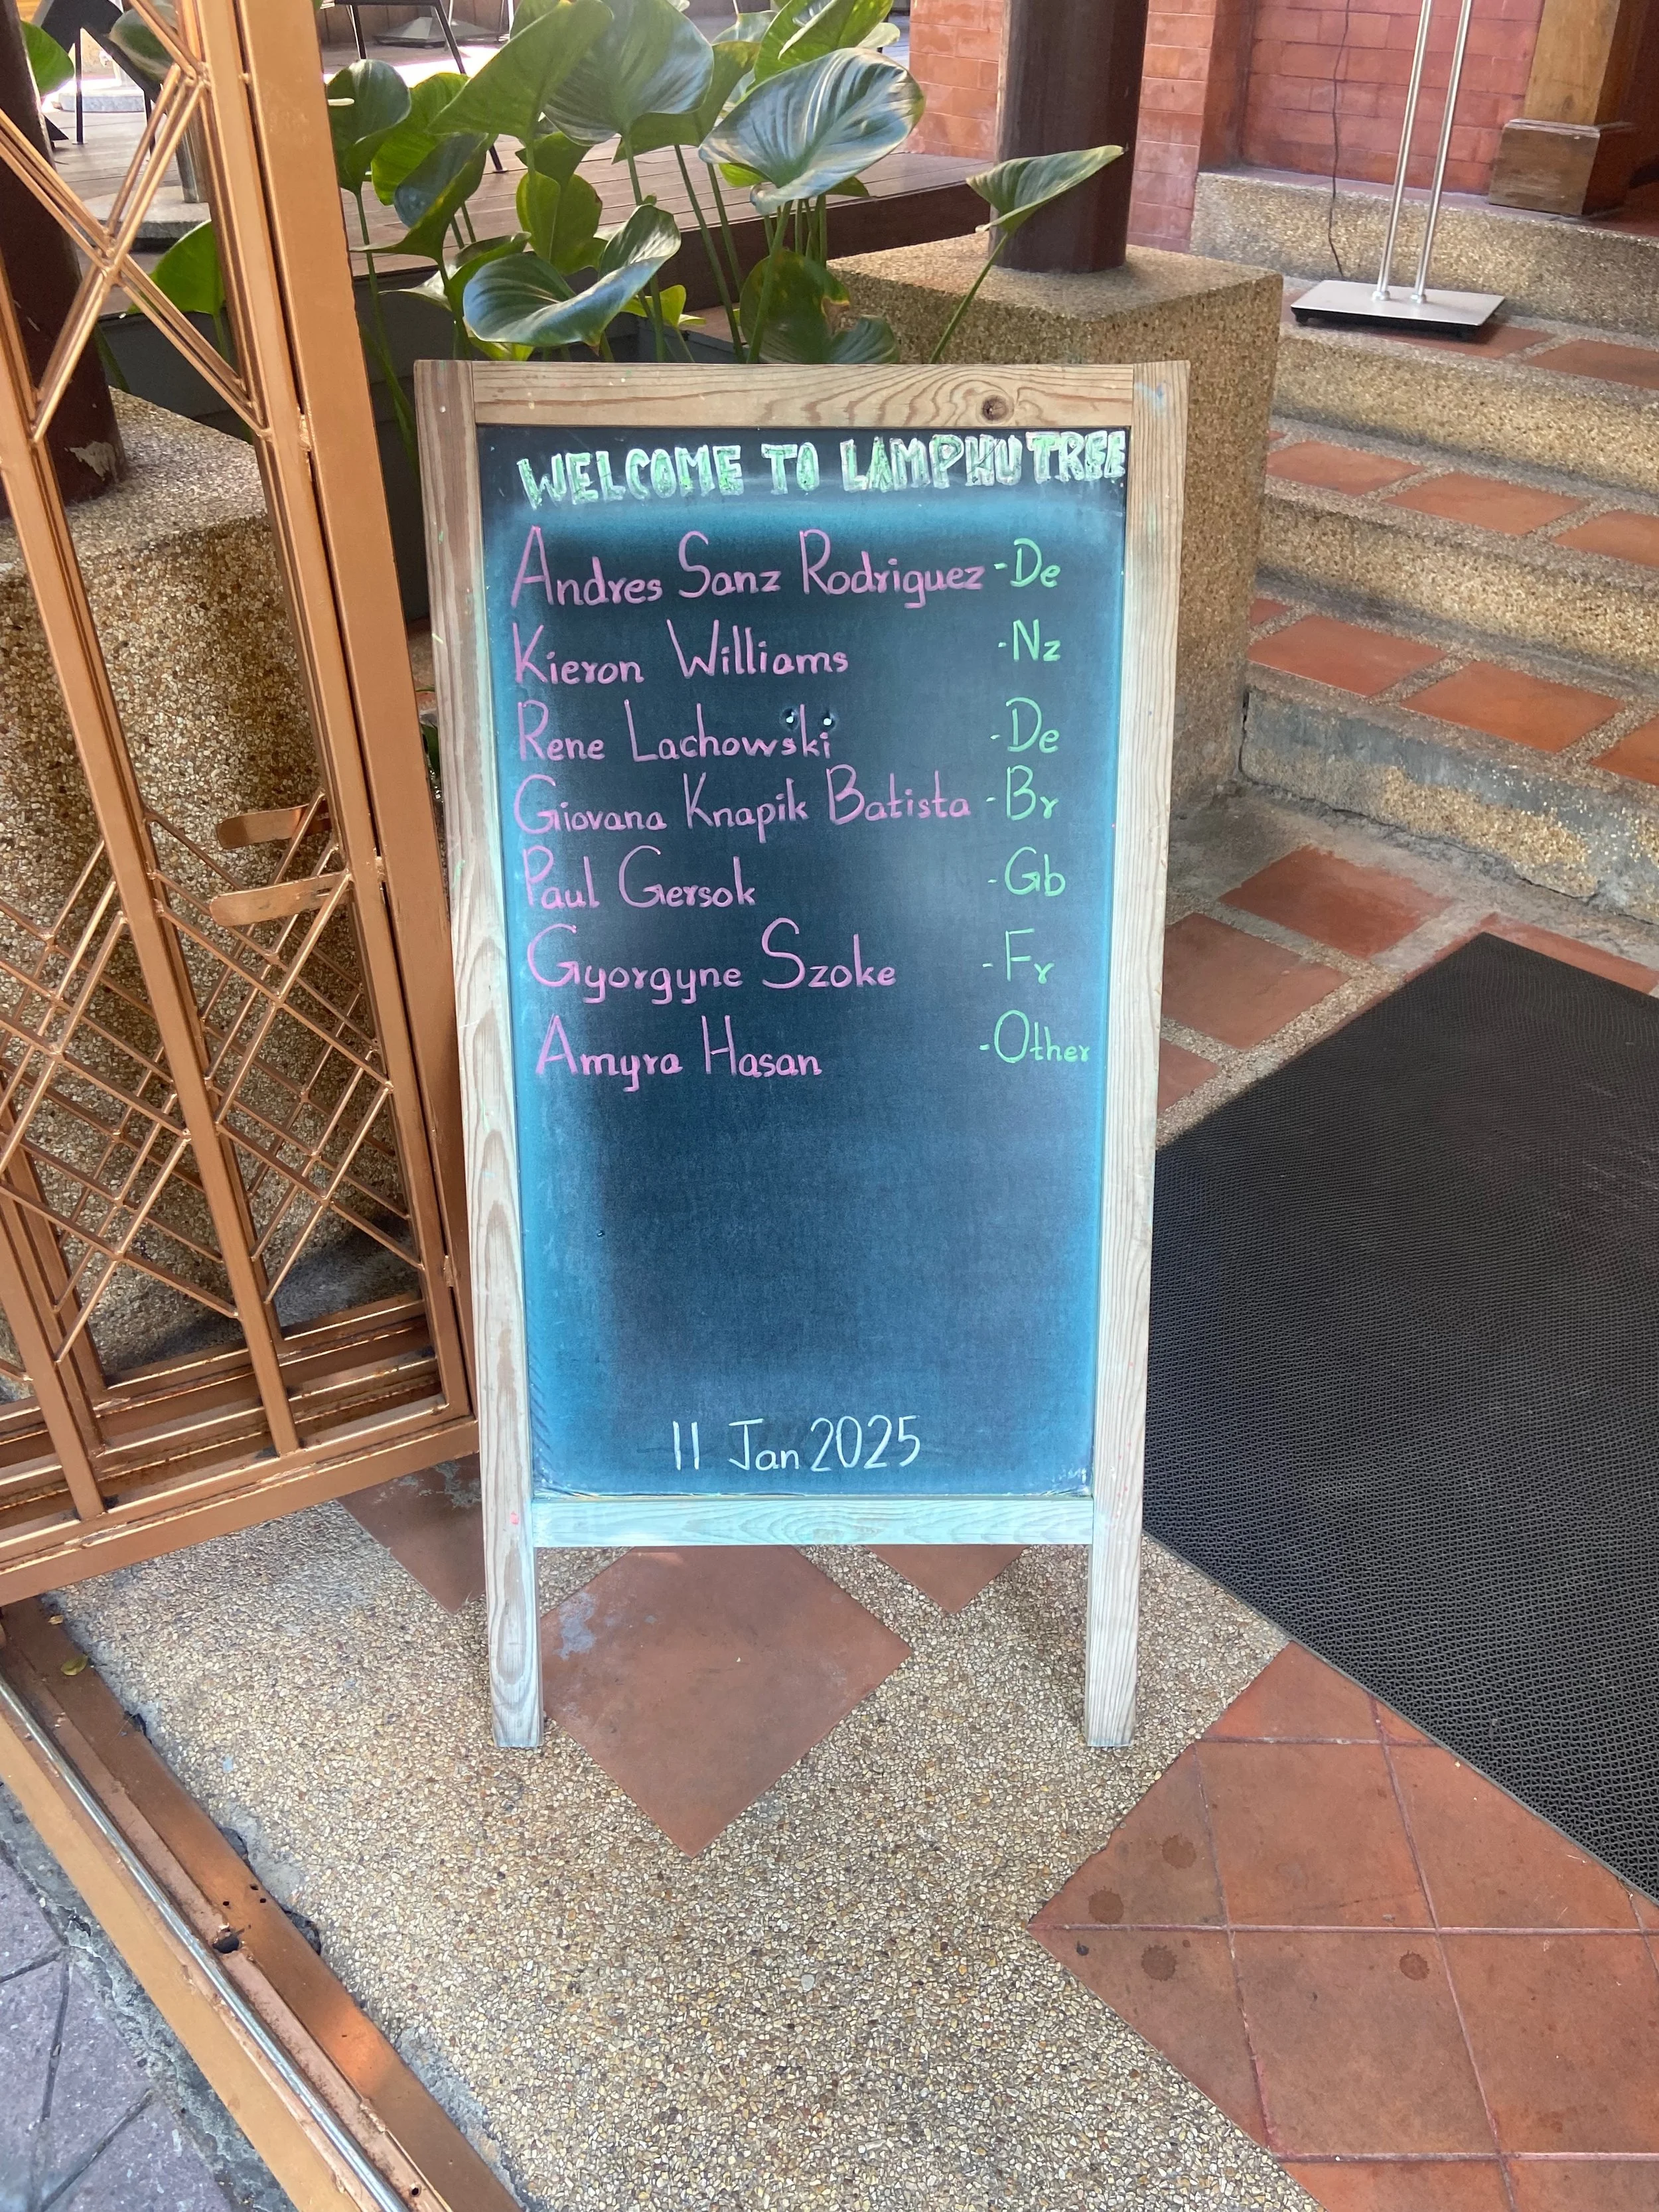 WELCOME TO LAMPHU TREE
Andres Sanz Rodriguez - De
Kieron Williams - Nz
Rene Lachowski - De
Giovana Knapik Batista - Br
Paul Gersok - Gb
Gyorgyne Szoke - Fr
Amyra Hasan - Other
11 Jan 2025